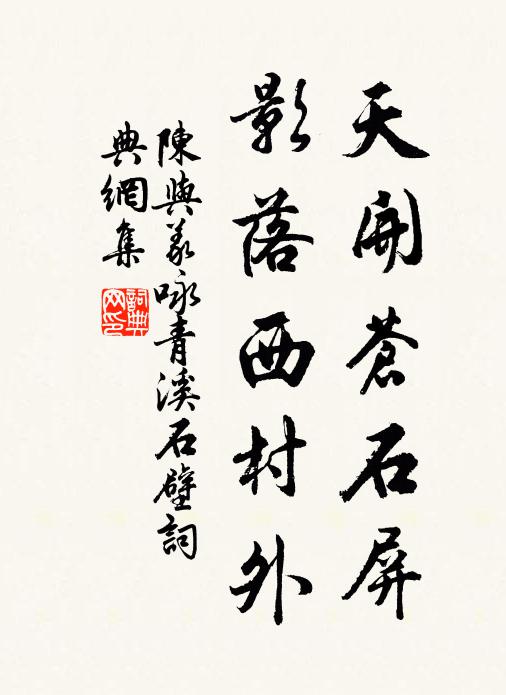 天開蒼石屏
影落西村外
陳與義咏青溪石壁詞
典網集
詞典網印